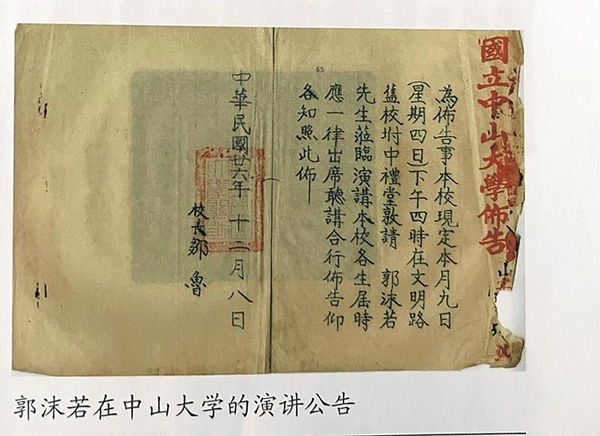 國立中山大學佈告
為佈告事本校現定本月九日
(星期四)下午四時在文明路
舊校坿中禮堂敦請 郭沫若
先生蒞臨演講本校各生屆時
應一律出席聽講合行佈告仰
各知照此佈
65
中華民國廿六年 十二月八日
校長鄒 魯
郭沫若在中山大学的演讲公告